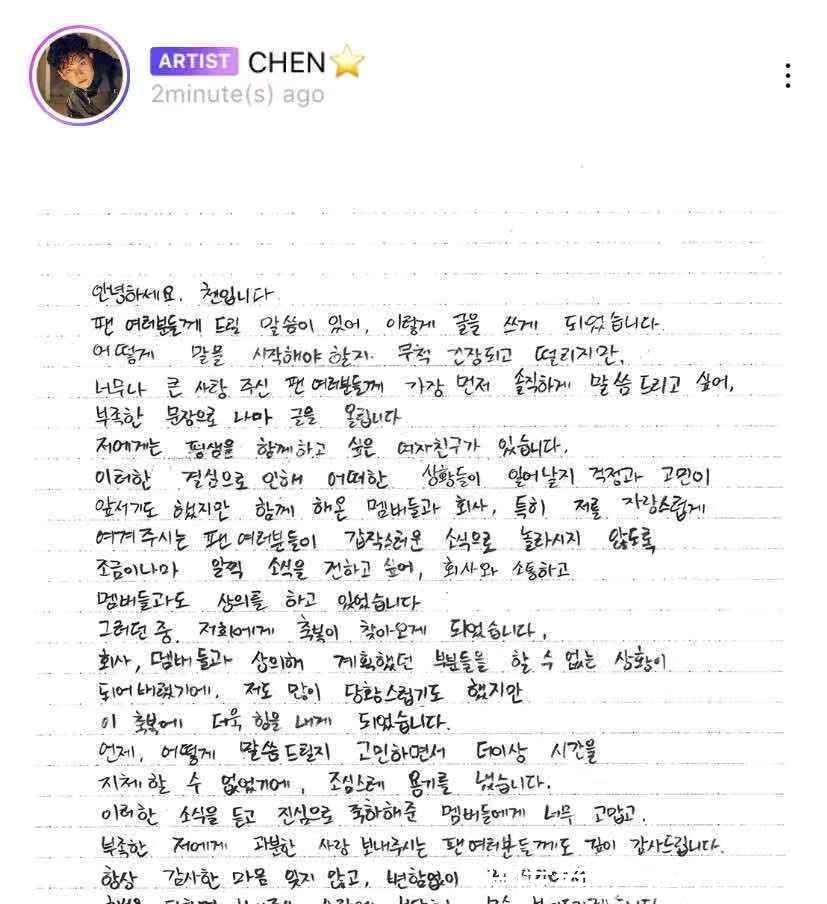 ARTIST CHEN⭐
2minute(s) ago
안녕하세요. 첸입니다
팬 여러분들께 드릴 말씀이 있어, 이렇게 글을 쓰게 되었습니다.
어떻게 말을 시작해야 할지 무척 긴장되고 떨리지만,
너무나 큰 사랑 주신 팬 여러분들께 가장 먼저 솔직하게 말씀드리고 싶어,
부족한 문장으로 나마 글을 올립니다
저에게는 평생을 함께하고 싶은 여자친구가 있습니다.
이러한 결심으로 인해 어떠한 상황들이 일어날지 걱정과 고민이
앞서기도 했지만 함께 해온 멤버들과 회사, 특히 저를 자랑스럽게
여겨주시는 팬 여러분들이 갑작스러운 소식으로 놀라시지 않도록
조금이나마 일찍 소식을 전하고 싶어, 회사와 소통하고
멤버들과도 상의를 하고 있었습니다
그러던 중, 저희에게 축복이 찾아오게 되었습니다.
회사, 멤버들과 상의해 계획했던 부분들을 할 수 없는 상황이
되어버렸기에, 저도 많이 당황스럽기도 했지만
이 축복에 더욱 힘을 내게 되었습니다.
언제, 어떻게 말씀드릴지 고민하면서 더이상 시간을
지체할 수 없었기에, 조심스레 용기를 냈습니다.
이러한 소식을 듣고 진심으로 축하해준 멤버들에게 너무 고맙고,
부족한 저에게 과분한 사랑 보내주시는 팬여러분들께도 깊이 감사드립니다.
항상 감사한 마음 잊지 않고, 변함없이